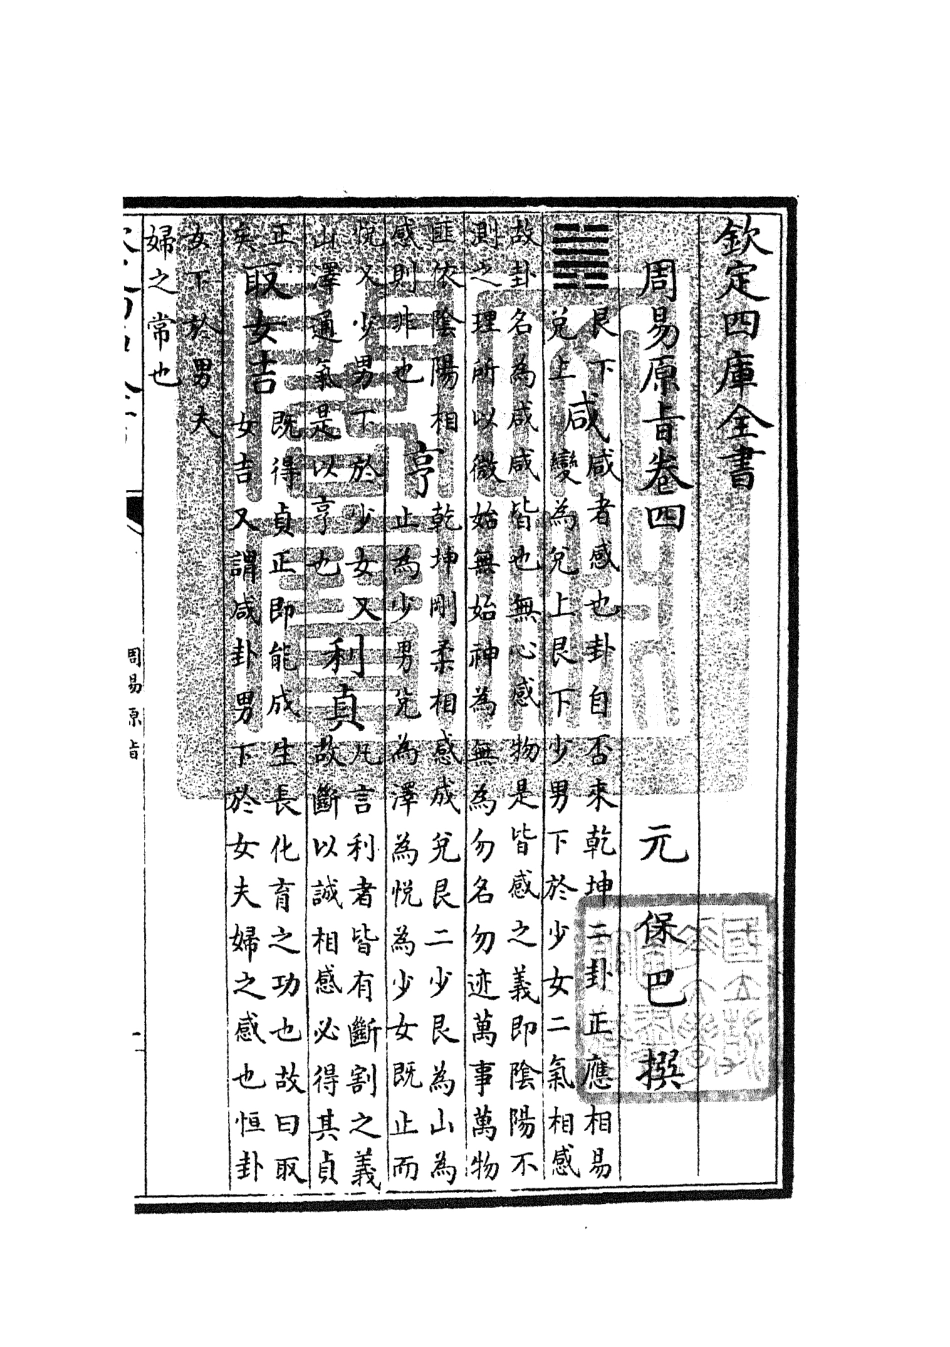 欽定四庫全書
周易原旨卷四
元 保巴 撰
䷞
艮下
兌上
咸
咸者感也卦自否來乾坤二卦正應相易
變為兌上艮下少男下於少女二氣相感
故卦名為咸咸皆也無心感物是皆感之義即陰陽不
測之理所以微始無始神為無為勿名勿迹萬事萬物
匪依陰陽相
感則非也
亨
乾坤剛柔相感成兌艮二少艮為山為
止為少男兌為澤為悅為少女既止而
悅又少男下於少女又
山澤通氣是以亨也
利貞
凡言利者皆有斷割之義
故斷以誠相感必得其貞
正
矣
取女吉
既得貞正即能成生長化育之功也故曰取
女吉又謂咸卦男下於女夫婦之感也恒卦
女下於男夫
婦之常也
周易原旨
一